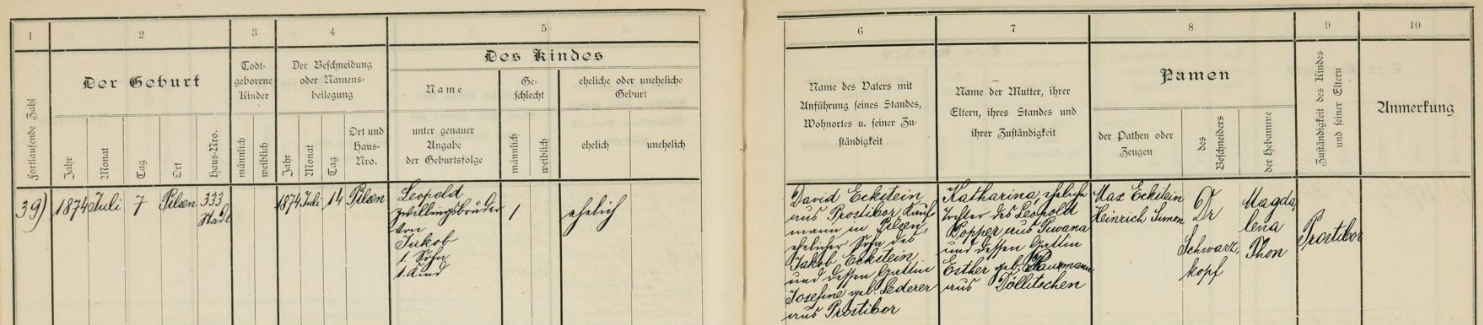 1
2
3
4
5
Der Geburt
Todt-
geborene
Kinder
Der Beschneidung
oder Namens-
beilegung
Des Kindes
Name
Ge-
schlecht
eheliche oder uneheliche
Geburt
Fortlaufende Zahl
Jahr
Monat
Tag
Ort
Haus-Nro.
männlich
weiblich
Jahr
Monat
Tag
Ort und
Haus-
Nro.
unter genauer
Angabe
der Geburtsfolge
männlich
weiblich
ehelich
unehelich
39)
1874
Juli
7
Pilsen
333
Stadt
1874
Juli
14
Pilsen
Leopold
Zwillingsbruder
von
Jakob
1. Sohn
1. Kind
1
ehelich
6
7
8
9
10
Name des Vaters mit
Anführung seines Standes,
Wohnortes u. seiner Zu-
ständigkeit
Name der Mutter, ihrer
Eltern, ihres Standes und
ihrer Zuständigkeit
Namen
der Pathen oder
Zeugen
des
Beschneiders
der Hebamme
Zuständigkeit des Kindes
und seiner Eltern
Anmerkung
David Eckstein
aus Prostibor Kauf
mann in Pilsen,
ehelicher Sohn des
Jakob Eckstein
und dessen Gattin
Josefine geb. Lederer
aus Prostibor
Katharina, eheliche
Tochter des Leopold
Popper aus Piwana
und dessen Gattin
Esther geb.
aus Döllitschen
Max Eckstein
Heinrich Simon
Dr
Schwarz
kopf
Magda
lena
Thon
Prostibor